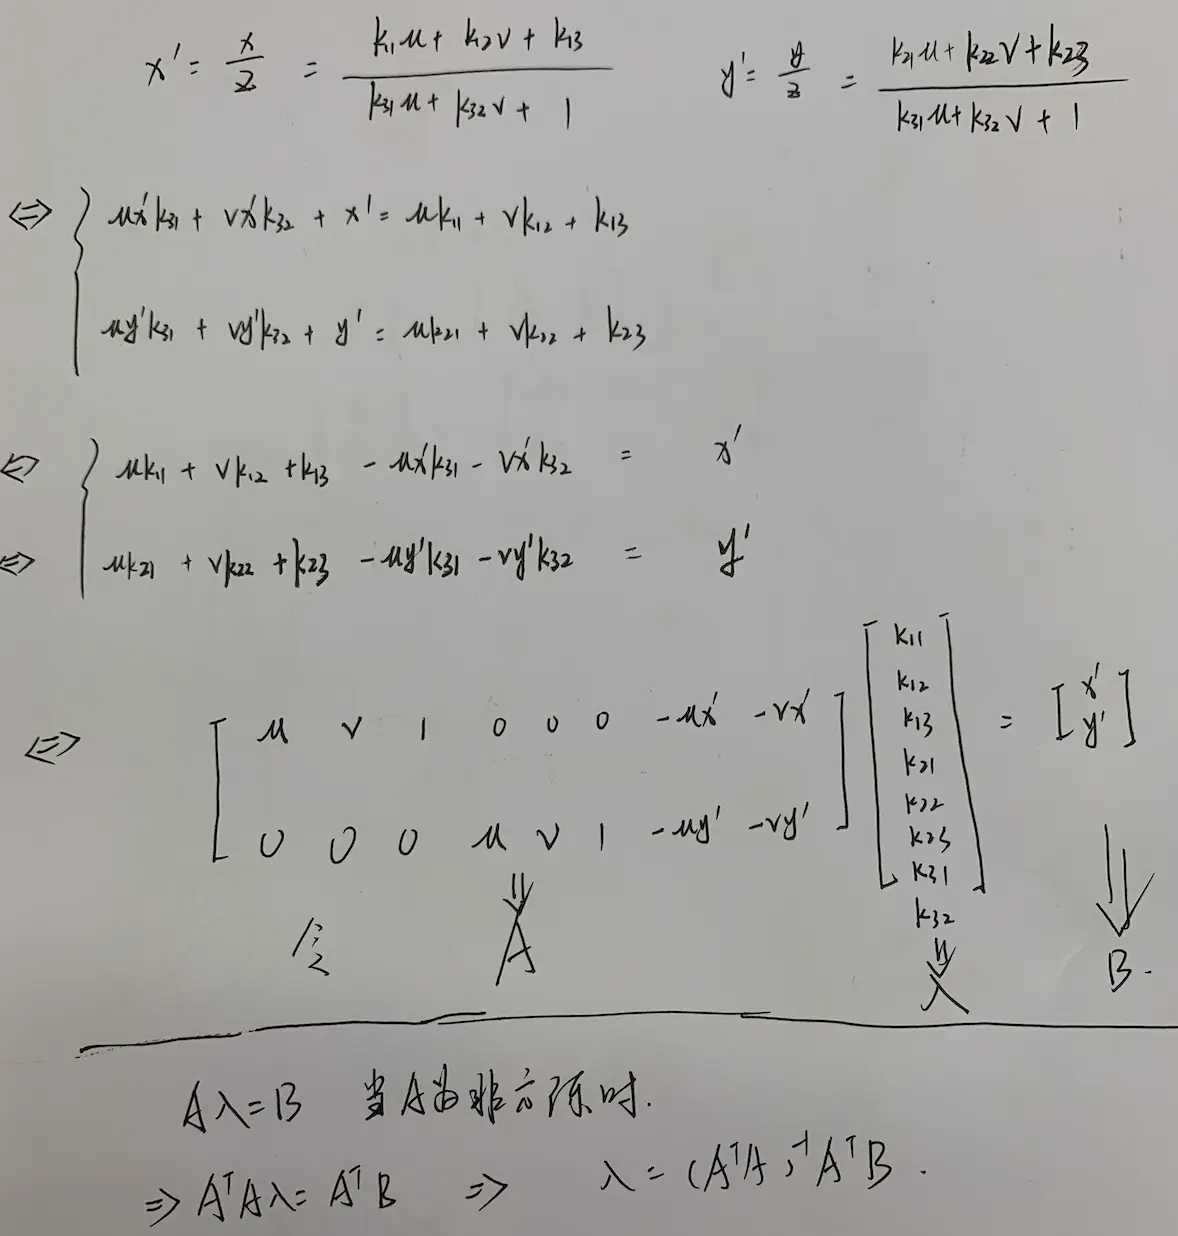 x' = x/z = (k₁₁u + k₁₂v + k₁₃)/(k₃₁u + k₃₂v + 1)    y' = y/z = (k₂₁u + k₂₂v + k₂₃)/(k₃₁u + k₃₂v + 1)
⇔ { ux'k₃₁ + vx'k₃₂ + x' = uk₁₁ + vk₁₂ + k₁₃
uy'k₃₁ + vy'k₃₂ + y' = uk₂₁ + vk₂₂ + k₂₃
⇔ { uk₁₁ + vk₁₂ + k₁₃ - ux'k₃₁ - vx'k₃₂ = x'
⇔ uk₂₁ + vk₂₂ + k₂₃ - uy'k₃₁ - vy'k₃₂ = y'
⇔ [ u v 1 0 0 0 -ux' -vx'
0 0 0 u v 1 -uy' -vy' ]
[ k₁₁
k₁₂
k₁₃
k₂₁
k₂₂
k₂₃
k₃₁
k₃₂ ]
= [ x'
y' ]
令 ⇓ A ⇓ λ ⇓ B.
Aλ=B 当A为非方阵时.
⇒ AᵀAλ = AᵀB ⇒ λ = (AᵀA)⁻¹AᵀB.